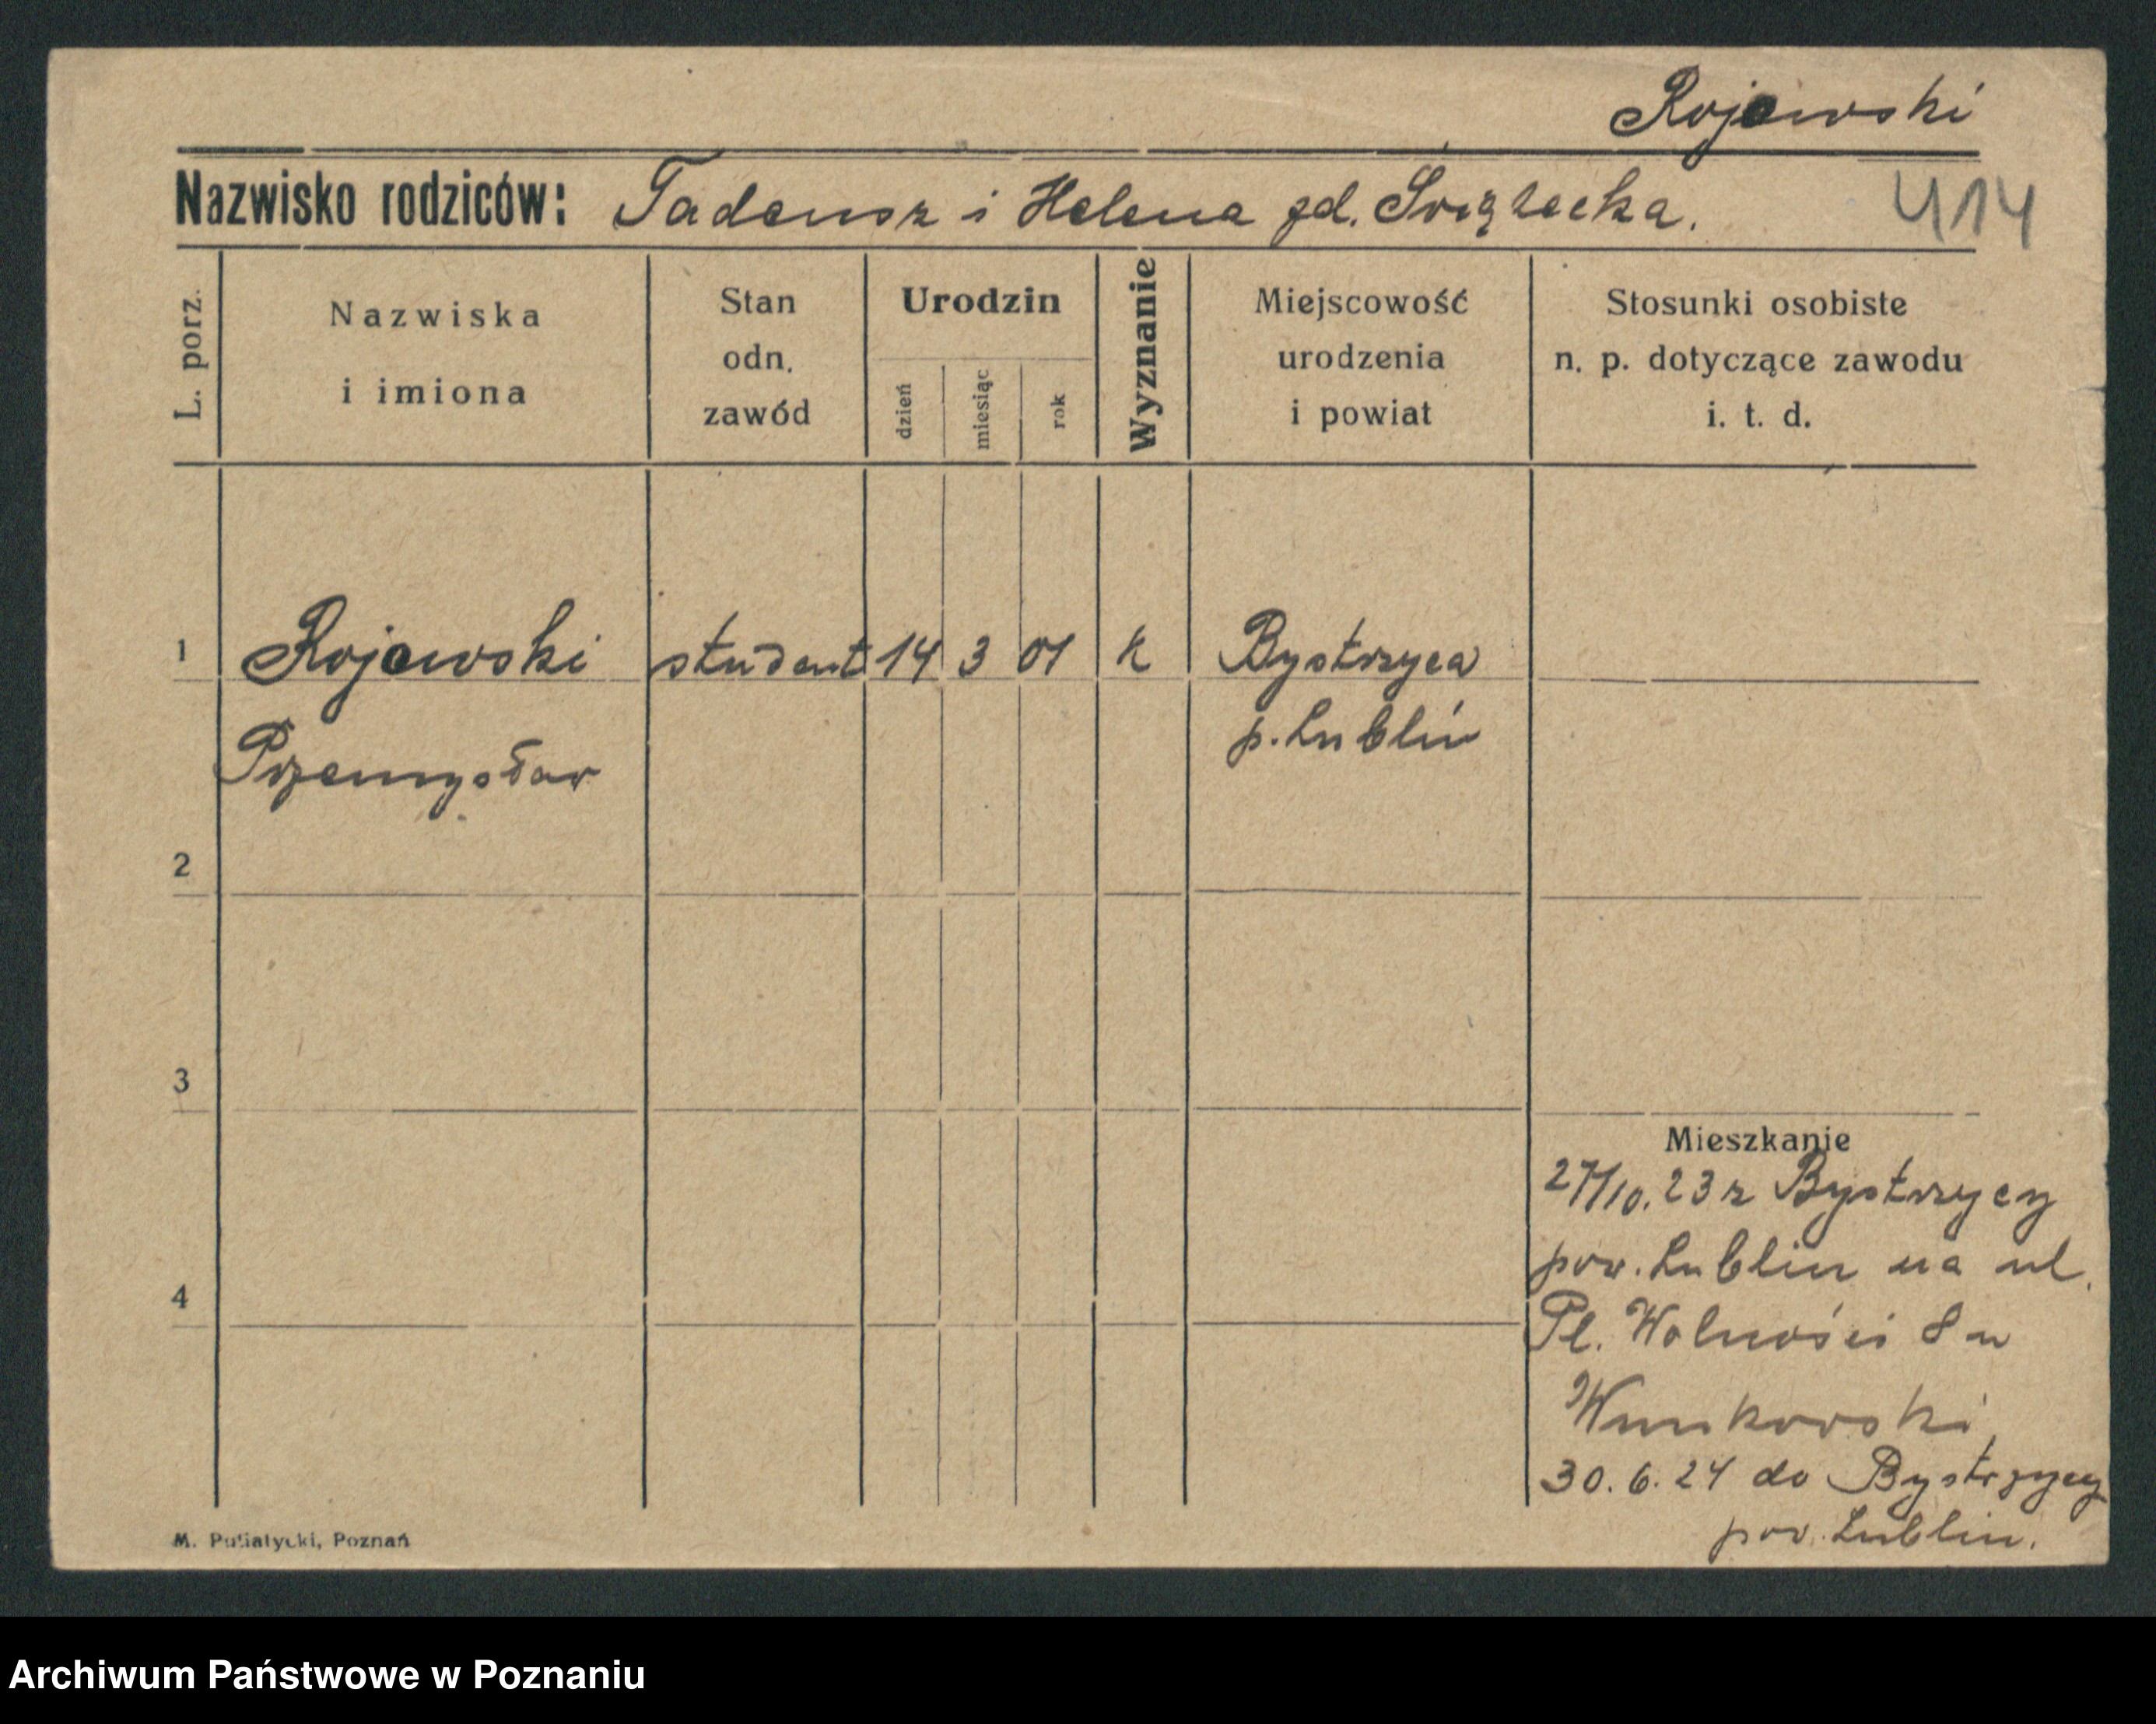 Rojowski
Nazwisko rodziców: Tadeusz i Helena zd. Świążecka.
414
L. porz.
Nazwiska
i imiona
Stan
odn.
zawód
Urodzin
dzień
miesiąc
rok
Wyznanie
Miejscowość
urodzenia
i powiat
Stosunki osobiste
n. p. dotyczące zawodu
i. t. d.
1 Rojowski student 14 3 01 k Bystrzyca
Przemysław p. Lublin
2
3
4
Mieszkanie
27/10.23 z Bystrzycy
pow. Lublin na ul.
Pl. Wolności 8 u
30.6.24 do Bystrzycy
pow. Lublin.
M. Putiatycki, Poznań
Archiwum Państwowe w Poznaniu